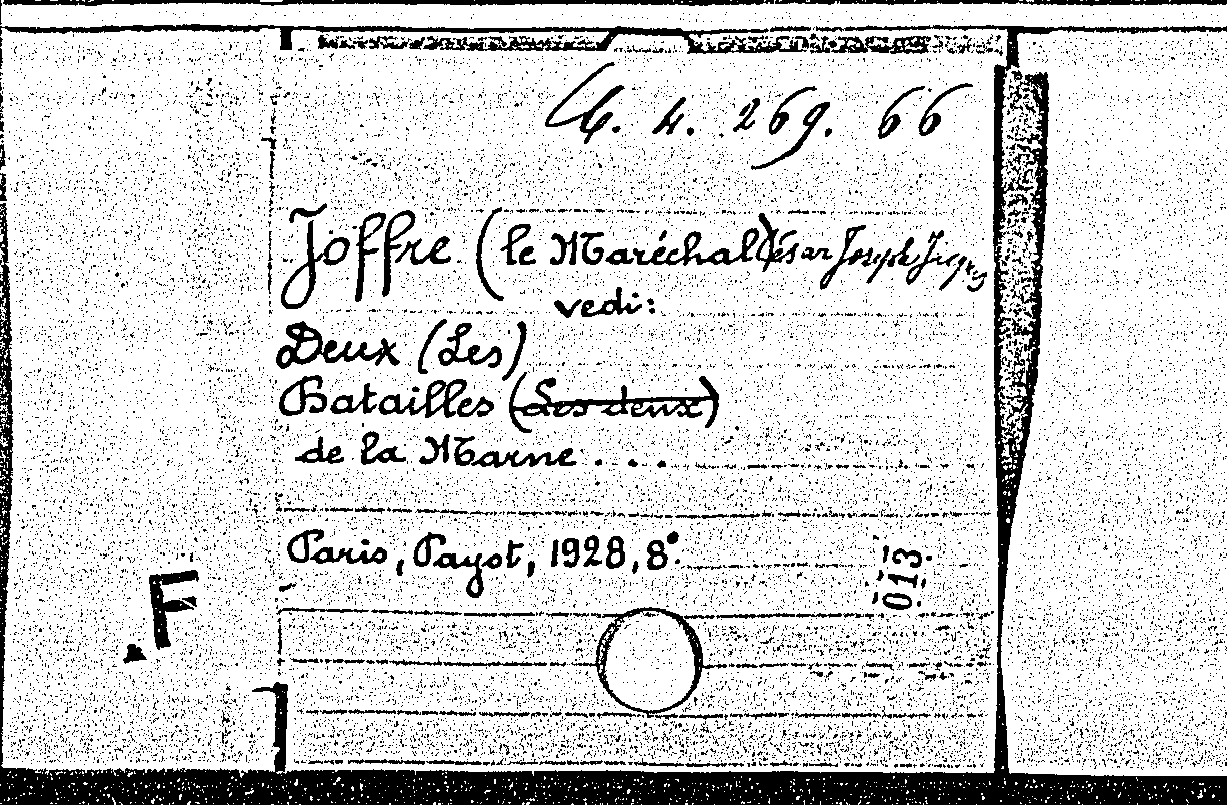 4. 269. 66
Joffre (le Maréchal) César Joseph Jacques
vedi:
Deux (Les)
Batailles (Les deux)
de la Marne . . .
Paris, Payot, 1928, 8°.
013
F